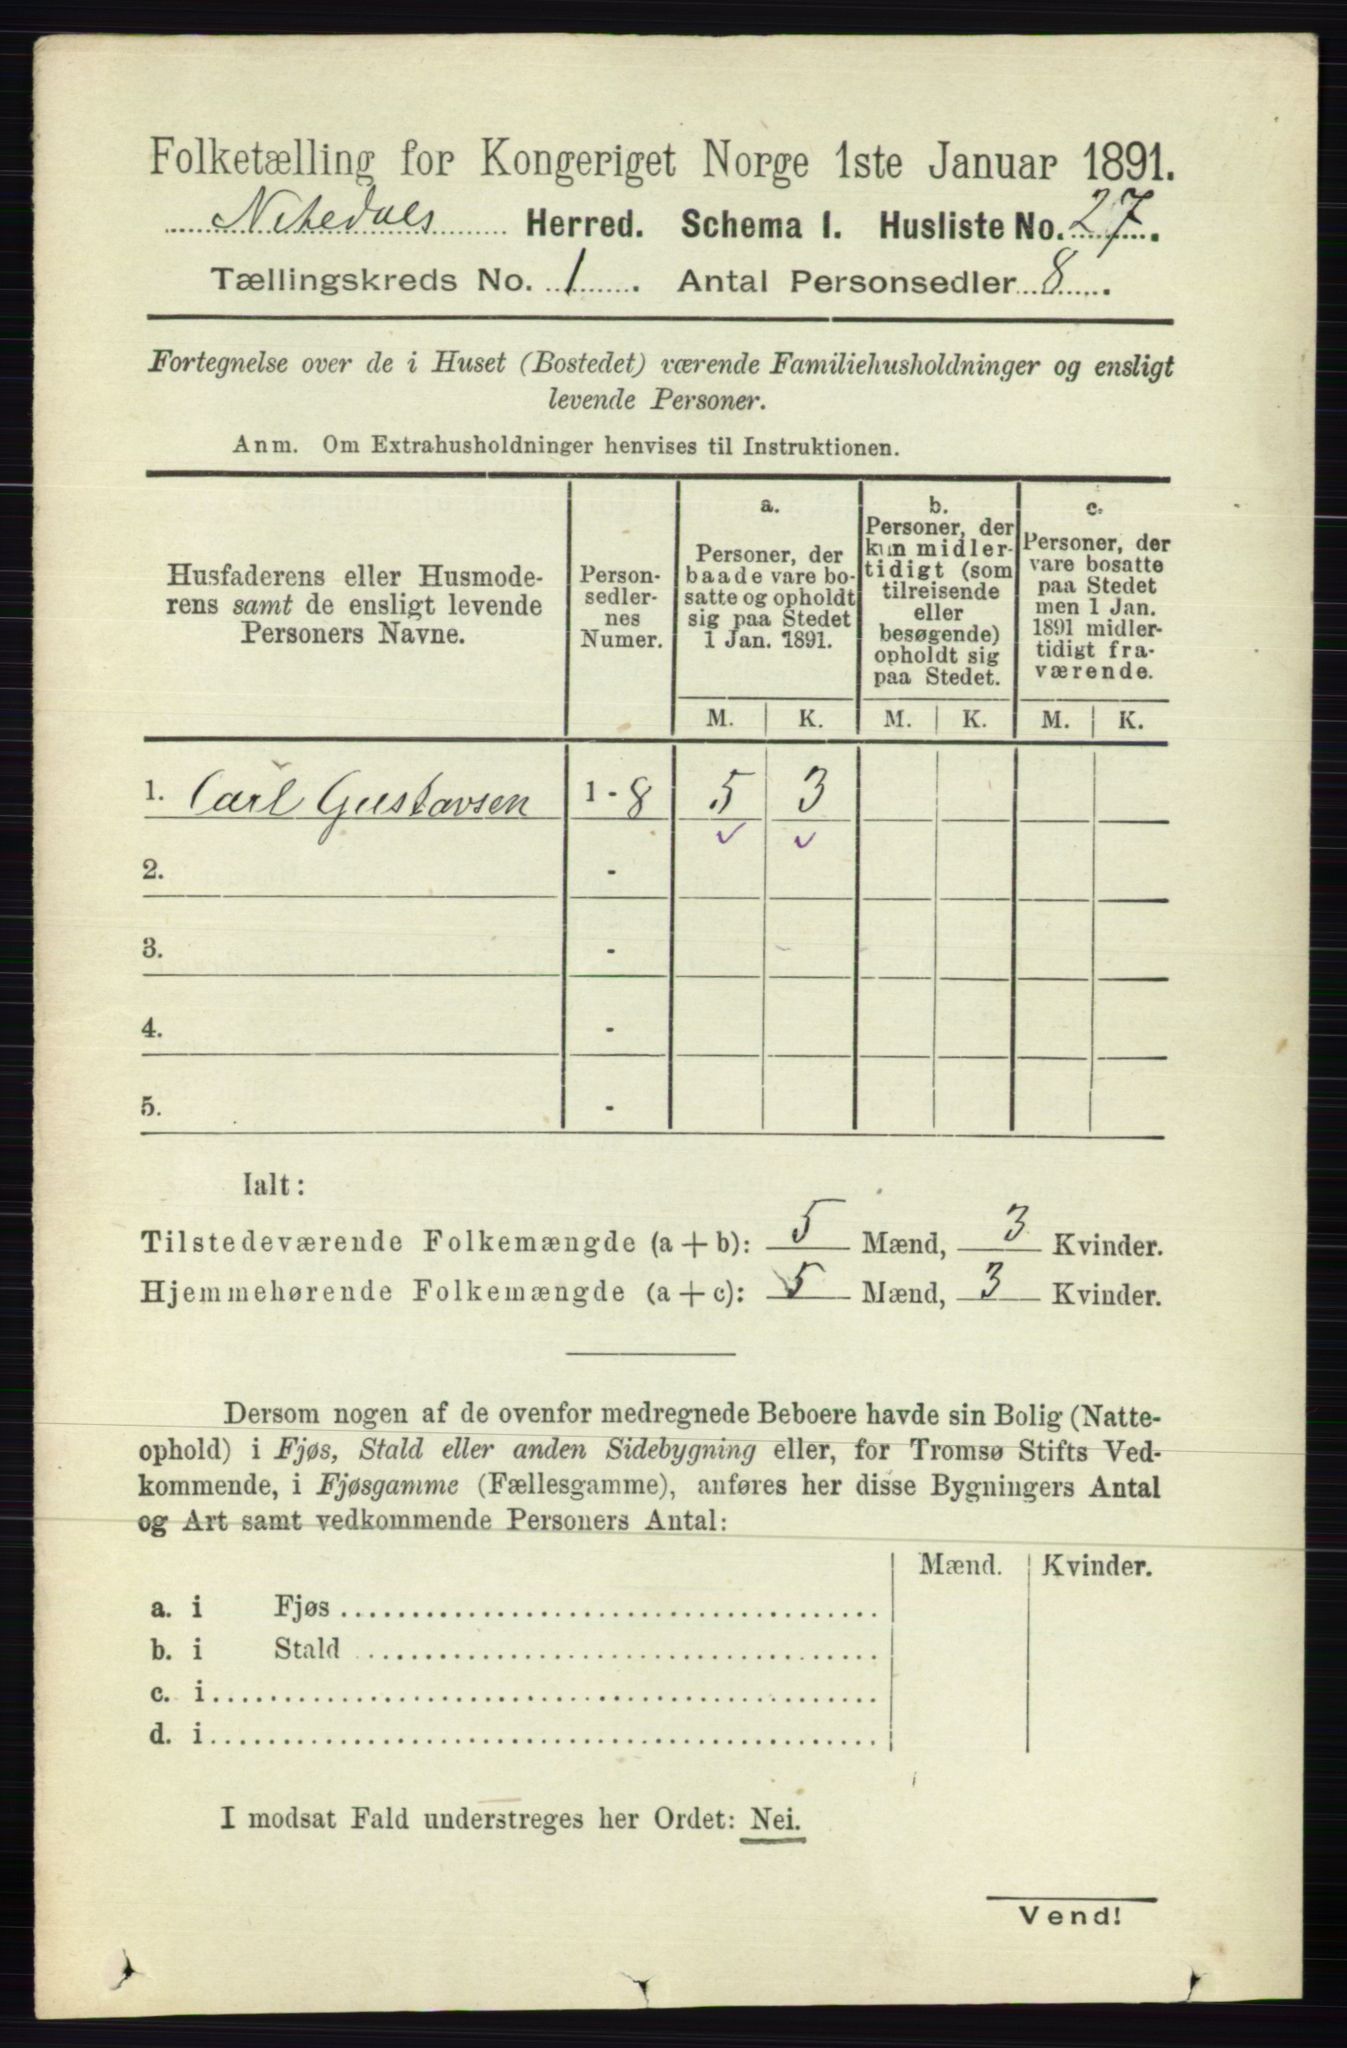 Folketælling for Kongeriget Norge 1ste Januar 1891.
Nitedals Herred. Schema I. Husliste No. 27.
Tællingskreds No. 1. Antal Personsedler 8.
Fortegnelse over de i Huset (Bostedet) værende Familiehusholdninger og ensligt
levende Personer.
Anm. Om Extrahusholdninger henvises til Instruktionen.
Husfaderens eller Husmode-
rens samt de ensligt levende
Personers Navne.
Person-
sedler-
nes
Numer.
a.
Personer, der
baade vare bo-
satte og opholdt
sig paa Stedet
1 Jan. 1891.
b.
Personer, der
kun midler-
tidigt (som
tilreisende
eller
besøgende)
opholdt sig
paa Stedet.
c.
Personer, der
vare bosatte
paa Stedet
men 1 Jan.
1891 midler-
tidigt fra-
værende.
M. K. M. K. M. K.
1. Carl Gustavsen 1 - 8 5 3
2. -
3. -
4. -
5. -
Ialt:
Tilstedeværende Folkemængde (a + b): 5 Mænd, 3 Kvinder.
Hjemmehørende Folkemængde (a + c): 5 Mænd, 3 Kvinder.
Dersom nogen af de ovenfor medregnede Beboere havde sin Bolig (Natte-
ophold) i Fjøs, Stald eller anden Sidebygning eller, for Tromsø Stifts Ved-
kommende, i Fjøsgamme (Fællesgamme), anføres her disse Bygningers Antal
og Art samt vedkommende Personers Antal:
Mænd. Kvinder.
a. i Fjøs
b. i Stald
c. i
d. i
I modsat Fald understreges her Ordet: Nei.
Vend!